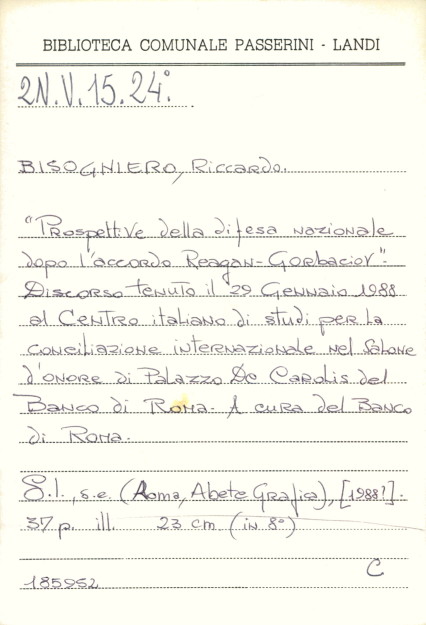 BIBLIOTECA COMUNALE PASSERINI - LANDI
2N.V.15.24°.
BISOGNIERO, Riccardo.
"Prospettive della difesa nazionale
dopo l'accordo Reagan-Gorbaciov".
Discorso tenuto il 29 Gennaio 1988
al Centro italiano di studi per la
conciliazione internazionale nel Salone
d'onore di Palazzo De Carolis del
Banco di Roma. A cura del Banco
di Roma.
S.l., s.e. (Roma, Abete Grafica), [1988?].
37 p. ill. 23 cm (in 8°)
C
185952